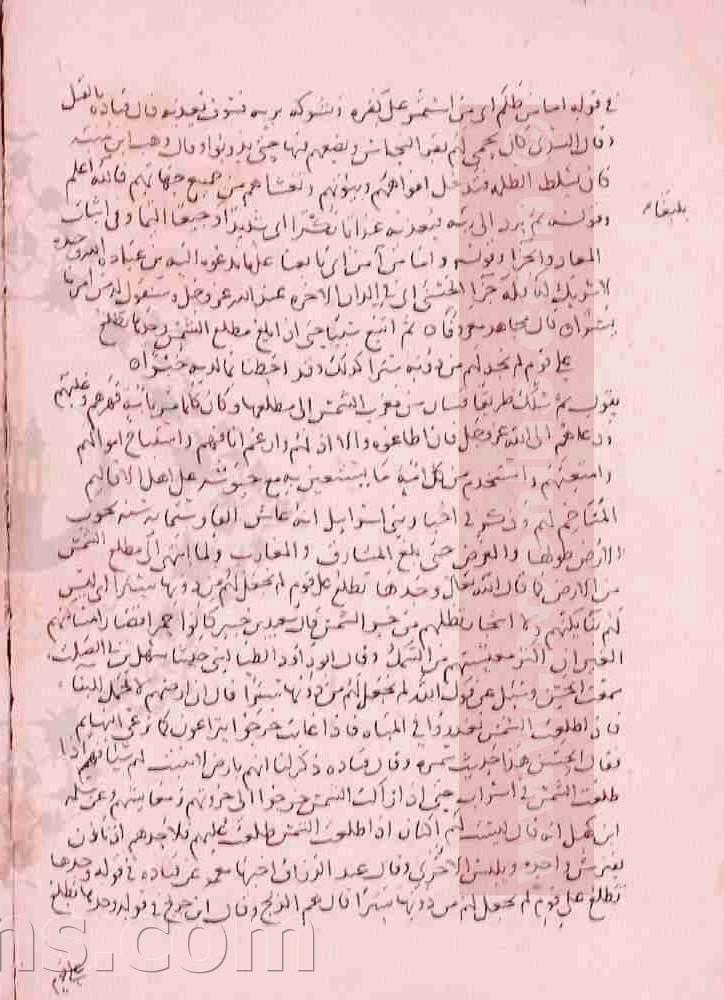 في قوله اما من ظلم اي من استمر على كفره وشركه بربه فسوف نعذبه قال قتادة بالقتل
وقال السدي كان يحمي لهم بقر النحاس ويضعهم فيها حتى يذوبوا وقال وهب ابن منبه
كان يسلط الظلمة فتدخل افواههم وبيوتهم وتغشاهم من جميع جهاتهم فالله اعلم
وقوله ثم يرد الى ربه فيعذبه عذابا نكرا اي شديدا وجيعا اليما وفي اثبات
المعاد والجزا وقوله واما من آمن اي تابعنا على ما ندعوه اليه من عبادة الله وحده
لا شريك له فله جزا الحسنى اي في الدار الاخره عند الله عز وجل وسنقول له من امرنا
يسرا قال مجاهد معروفا ثم اتبع سببا حتى اذا بلغ مطلع الشمس وجدها تطلع
على قوم لم نجعل لهم من دونها سترا كذلك وقد احطنا بما لديه خبرا
يقول ثم سلك طريقا فسار من مغرب الشمس الى مطلعها وكان كلما مر بامة قهرهم وغلبهم
ودعاهم الى الله عز وجل فان اطاعوه والا اذلهم وارغم انافهم واستباح اموالهم
وامتعتهم واستخدم من كل امة ما يستعين به مع جيوشه على اهل الاقاليم
المتاخم لهم وذكر في اخبار بني اسرايل انه عاش الفا وستمايه سنه يجوب
الارض طولها والعرض حتى بلغ المشارق والمغارب ولما انتهى الى مطلع الشمس
من الارض كما قال الله تعالى وجدها تطلع على قوم لم نجعل لهم من دونها سترا اي ليس
لهم بنا يكنهم ولا اشجار تظلهم من حر الشمس قال سعيد بن جبير كانوا حمرا قصارا مساكنهم
الغيران اكثر معيشتهم من السمك وقال ابو داود الطيالسي حدثنا سهل بن ابي الصلت
سمعت الحسن وسئل عن قول الله لم نجعل لهم من دونها سترا قال ان ارضهم لا تحمل البنا
فاذا طلعت الشمس تغوروا في المياه فاذا غابت خرجوا يتراعون كما ترعى البهايم
وقال الحسن هذا حديث سمرة وقال قتادة ذكر لنا انهم بارض لا تنبت لهم شيا فهم اذا
طلعت الشمس في اسراب حتى اذا زالت الشمس خرجوا الى حروثهم ومعايشهم وعن سلمة
ابن كهيل انه قال ليست لهم اكنان اذا طلعت الشمس طلعت عليهم فلاحدهم اذنان
يفترش واحدة ويلبس الاخرى وقال عبد الرزاق اخبرنا معمر عن قتادة في قوله وجدها
تطلع على قوم لم نجعل لهم من دونها سترا قال هم الزنج وقال ابن جريج في قوله وجدها تطلع
على قوم
ns.com